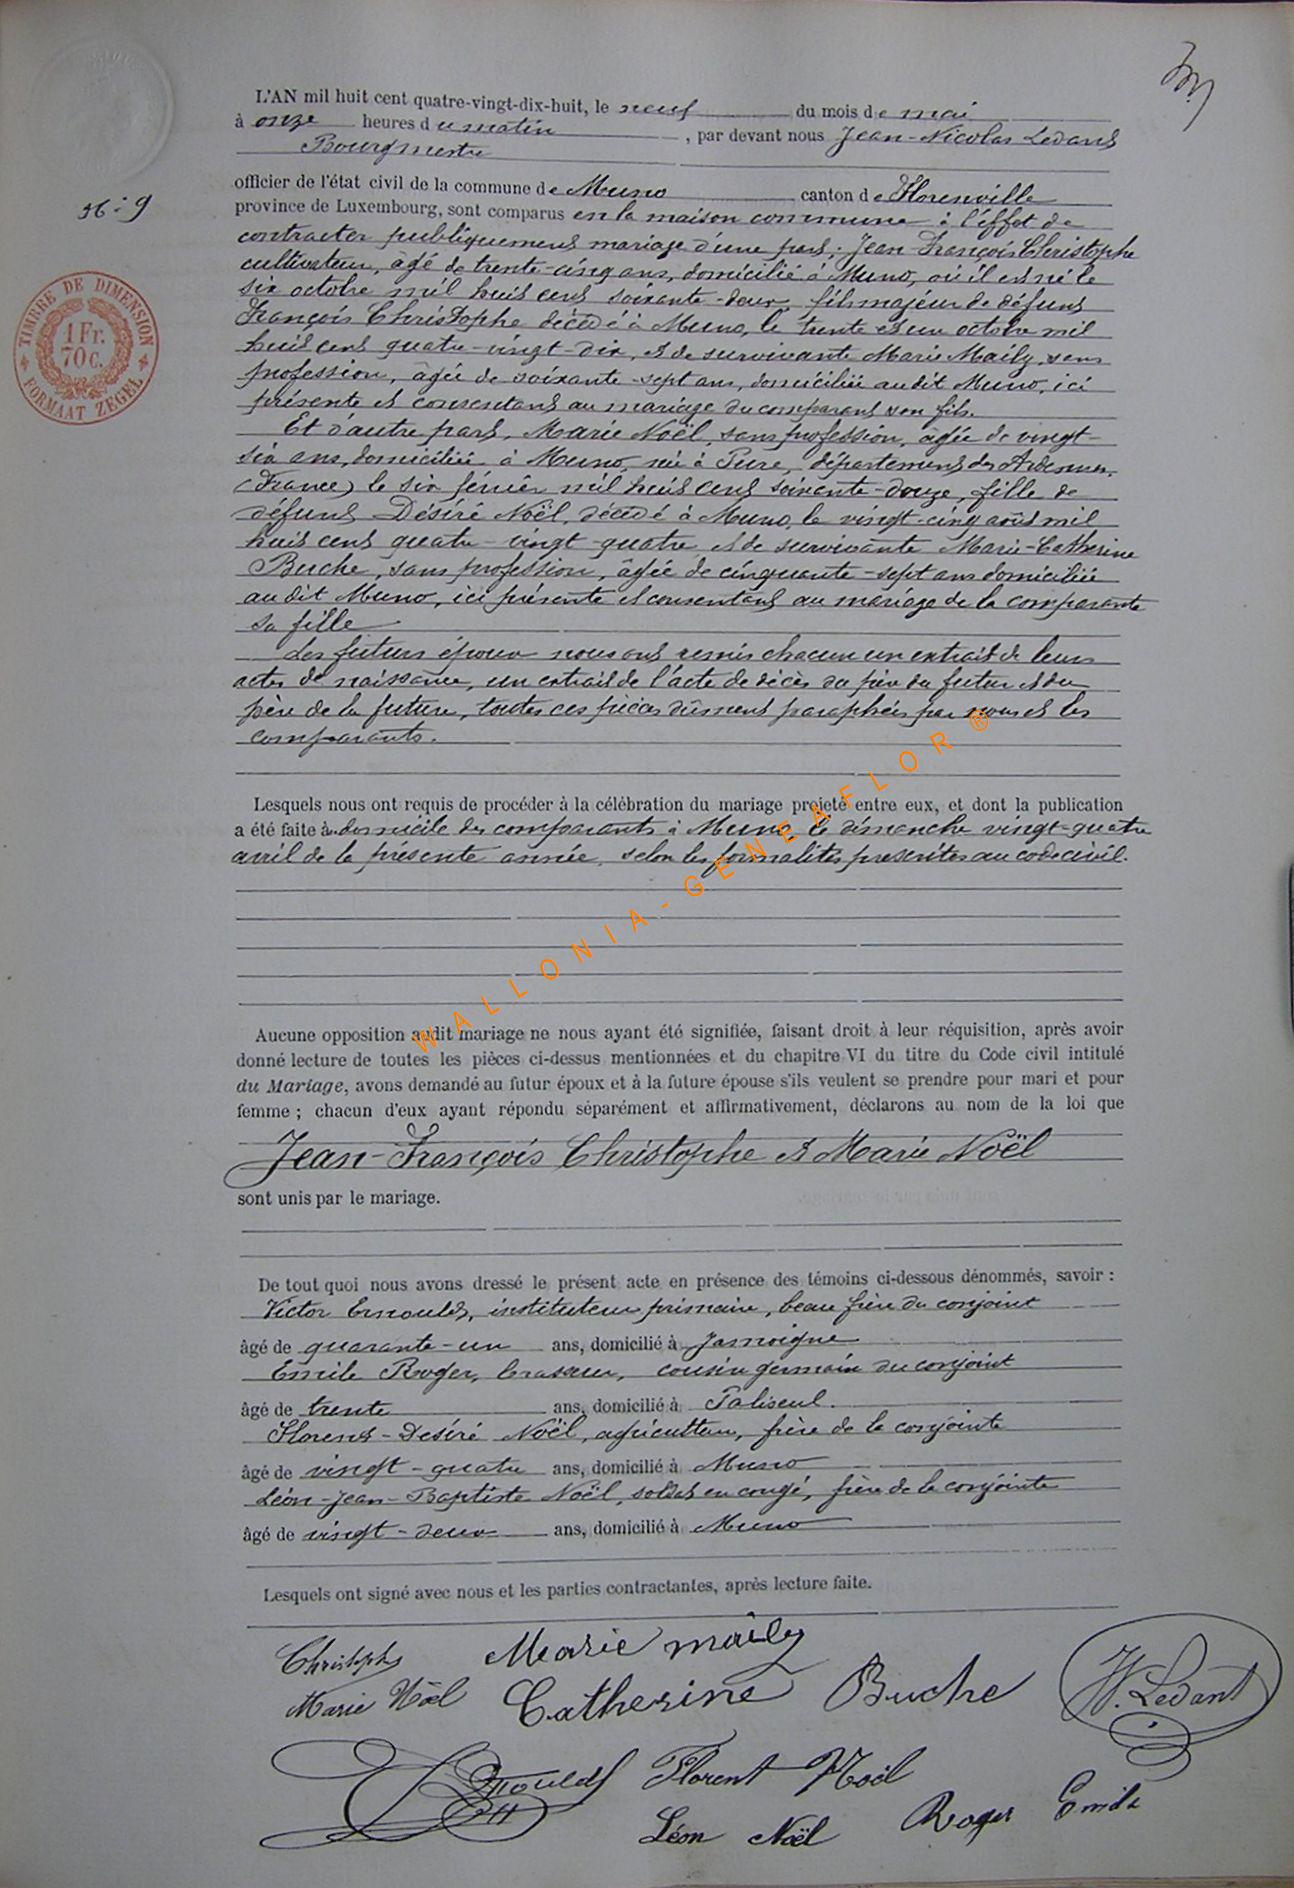 L'AN mil huit cent quatre-vingt-dix-huit, le neuf du mois de mai
à onze heures du matin, par devant nous Jean-Nicolas Ledant
Bourgmestre
officier de l'état civil de la commune de Muno canton de Florenville
N: 9
province de Luxembourg, sont comparus en la maison commune à l'effet de
contracter publiquement mariage d'une part, Jean-François Christophe
cultivateur, âgé de trente-cinq ans, domicilié à Muno, où il est né le
six octobre mil huit cent soixante-deux fils majeur de défunt
François Christophe décédé à Muno, le trente et un octobre mil
huit cent quatre-vingt-dix, et de survivante Marie Maily, sans
profession, âgée de soixante-sept ans, domiciliée audit Muno, ici
présente et consentant au mariage du comparant son fils.
Et d'autre part, Marie Noël, sans profession, âgée de vingt-
six ans, domiciliée à Muno, née à Pure, département des Ardennes,
(France) le six février mil huit cent soixante-douze, fille de
défunt Désiré Noël, décédé à Muno, le vingt-cinq août mil
huit cent quatre-vingt-quatre et de survivante Marie-Catherine
Buche, sans profession, âgée de cinquante-sept ans domiciliée
audit Muno, ici présente et consentant au mariage de la comparante
sa fille
Les futurs époux nous ont remis chacun un extrait de leurs
actes de naissance, un extrait de l'acte de décès du père du futur et du
père de la future, toutes ces pièces dûment paraphées par nous et les
comparants.
TIMBRE DE DIMENSION
1 Fr.
70 c.
FORMAAT ZEGEL
Lesquels nous ont requis de procéder à la célébration du mariage projeté entre eux, et dont la publication
a été faite à domicile des comparants à Muno le dimanche vingt-quatre
avril de la présente année, selon les formalités prescrites au code civil.
WALLONIA-GENEAFLOR®
Aucune opposition audit mariage ne nous ayant été signifiée, faisant droit à leur réquisition, après avoir
donné lecture de toutes les pièces ci-dessus mentionnées et du chapitre VI du titre du Code civil intitulé
du Mariage, avons demandé au futur époux et à la future épouse s'ils veulent se prendre pour mari et pour
femme ; chacun d'eux ayant répondu séparément et affirmativement, déclarons au nom de la loi que
Jean-François Christophe et Marie Noël
sont unis par le mariage.
De tout quoi nous avons dressé le présent acte en présence des témoins ci-dessous dénommés, savoir :
Victor Arnould, instituteur primaire, beau frère du conjoint
âgé de quarante-un ans, domicilié à Jamoigne
Emile Roger, brasseur, cousin germain du conjoint
âgé de trente ans, domicilié à Paliseul.
Florent-Désiré Noël, agriculteur, frère de la conjointe
âgé de vingt-quatre ans, domicilié à Muno
Léon-Jean-Baptiste Noël, soldat en congé, frère de la conjointe
âgé de vingt-deux ans, domicilié à Muno
Lesquels ont signé avec nous et les parties contractantes, après lecture faite.
Christophe Marie maily
Marie Noël Catherine Buche N. Ledant
Florent Noël
Léon Noël Roger Emile